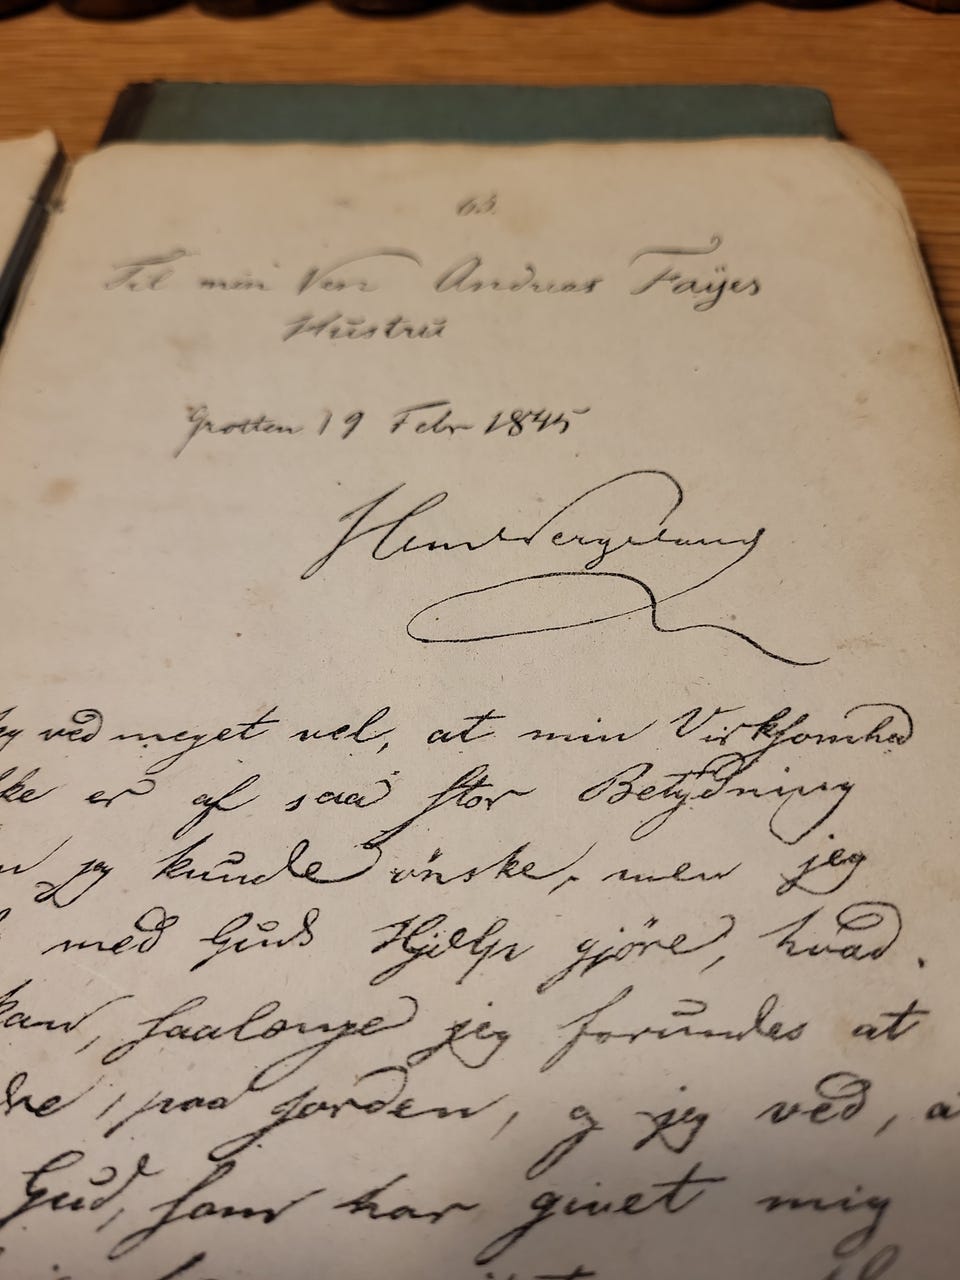 63.
Til min Ven Andreas Fayes
Hustru
Grotten 19 Febr 1845
Henr Wergeland
ved meget vel, at min Virksomhed
er af saa stor Betydning
jeg kunde önske, men jeg
med Guds Hjelp gjöre, hvad
kan, saalænge jeg forundes at
paa Jorden, og jeg ved, a
Gud, som har givet mig